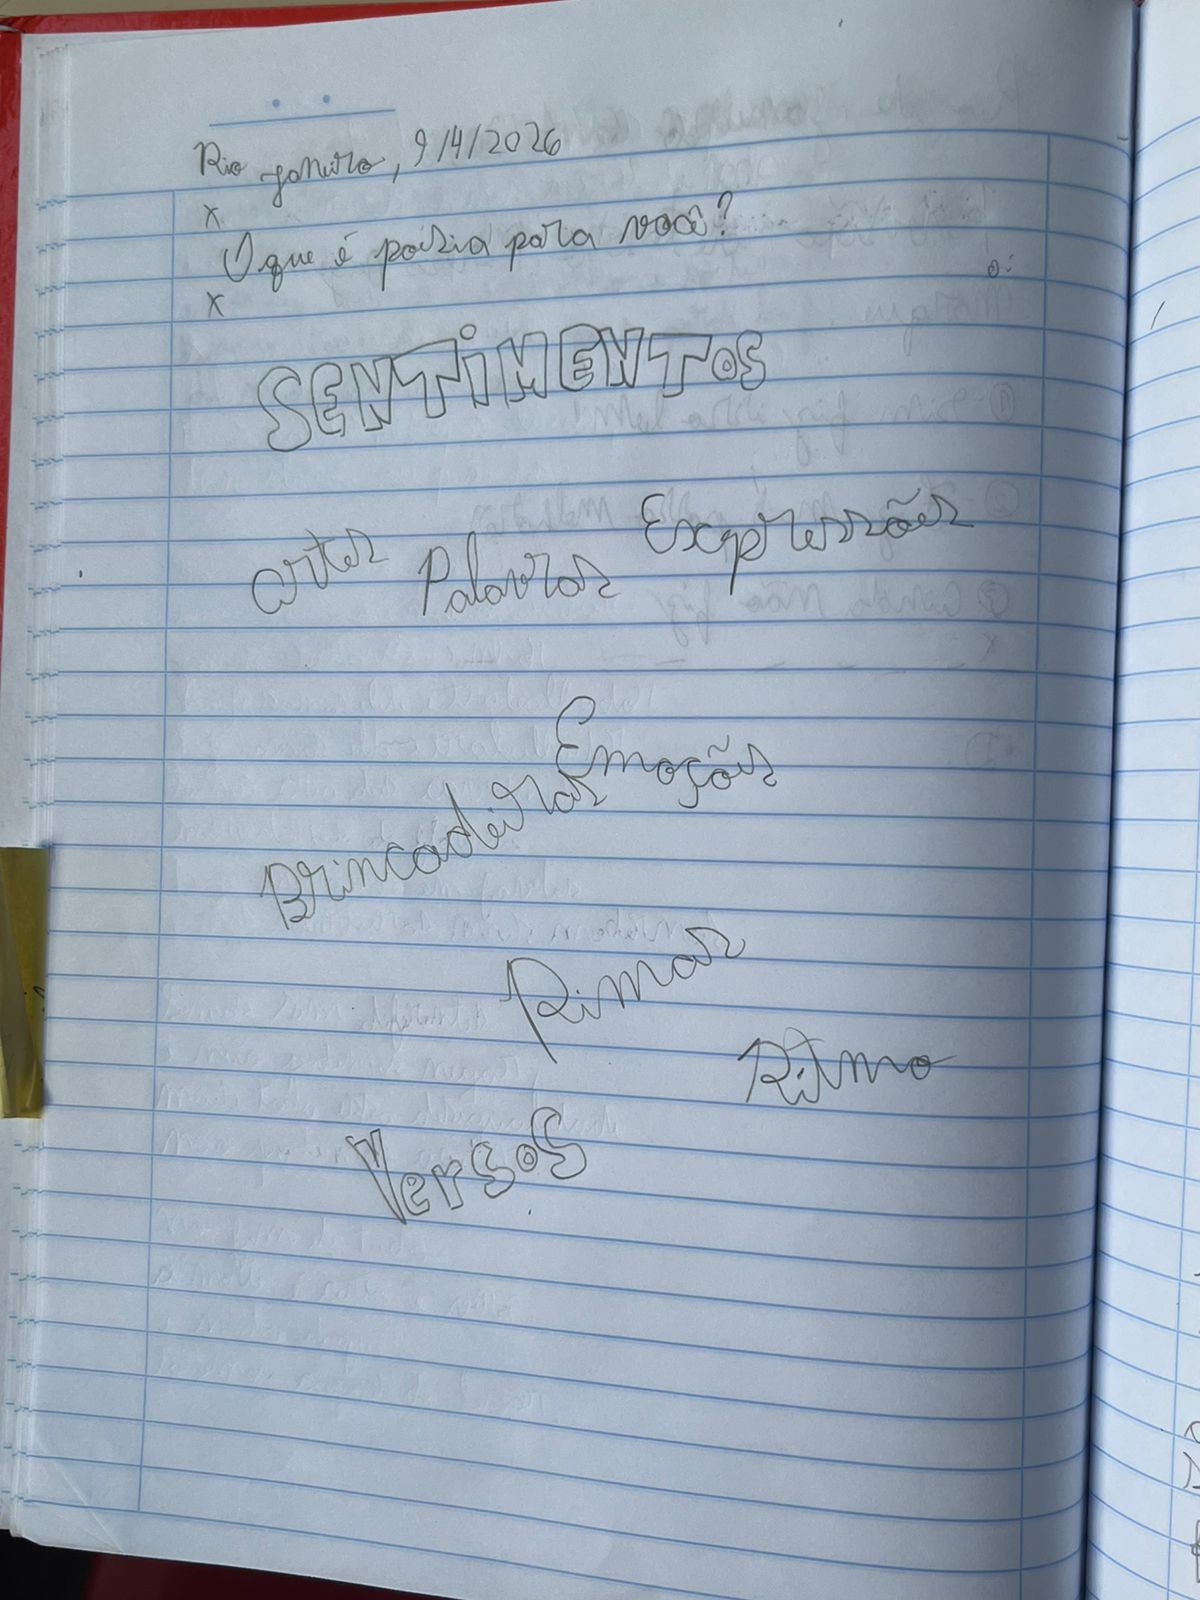 Rio Janeiro, 9/4/2026
x
O que é poesia para você?
x
SENTIMENTOS
artes Palavras Expressões
Emoções
Brincadeiras
Rimas
Ritmo
Versos